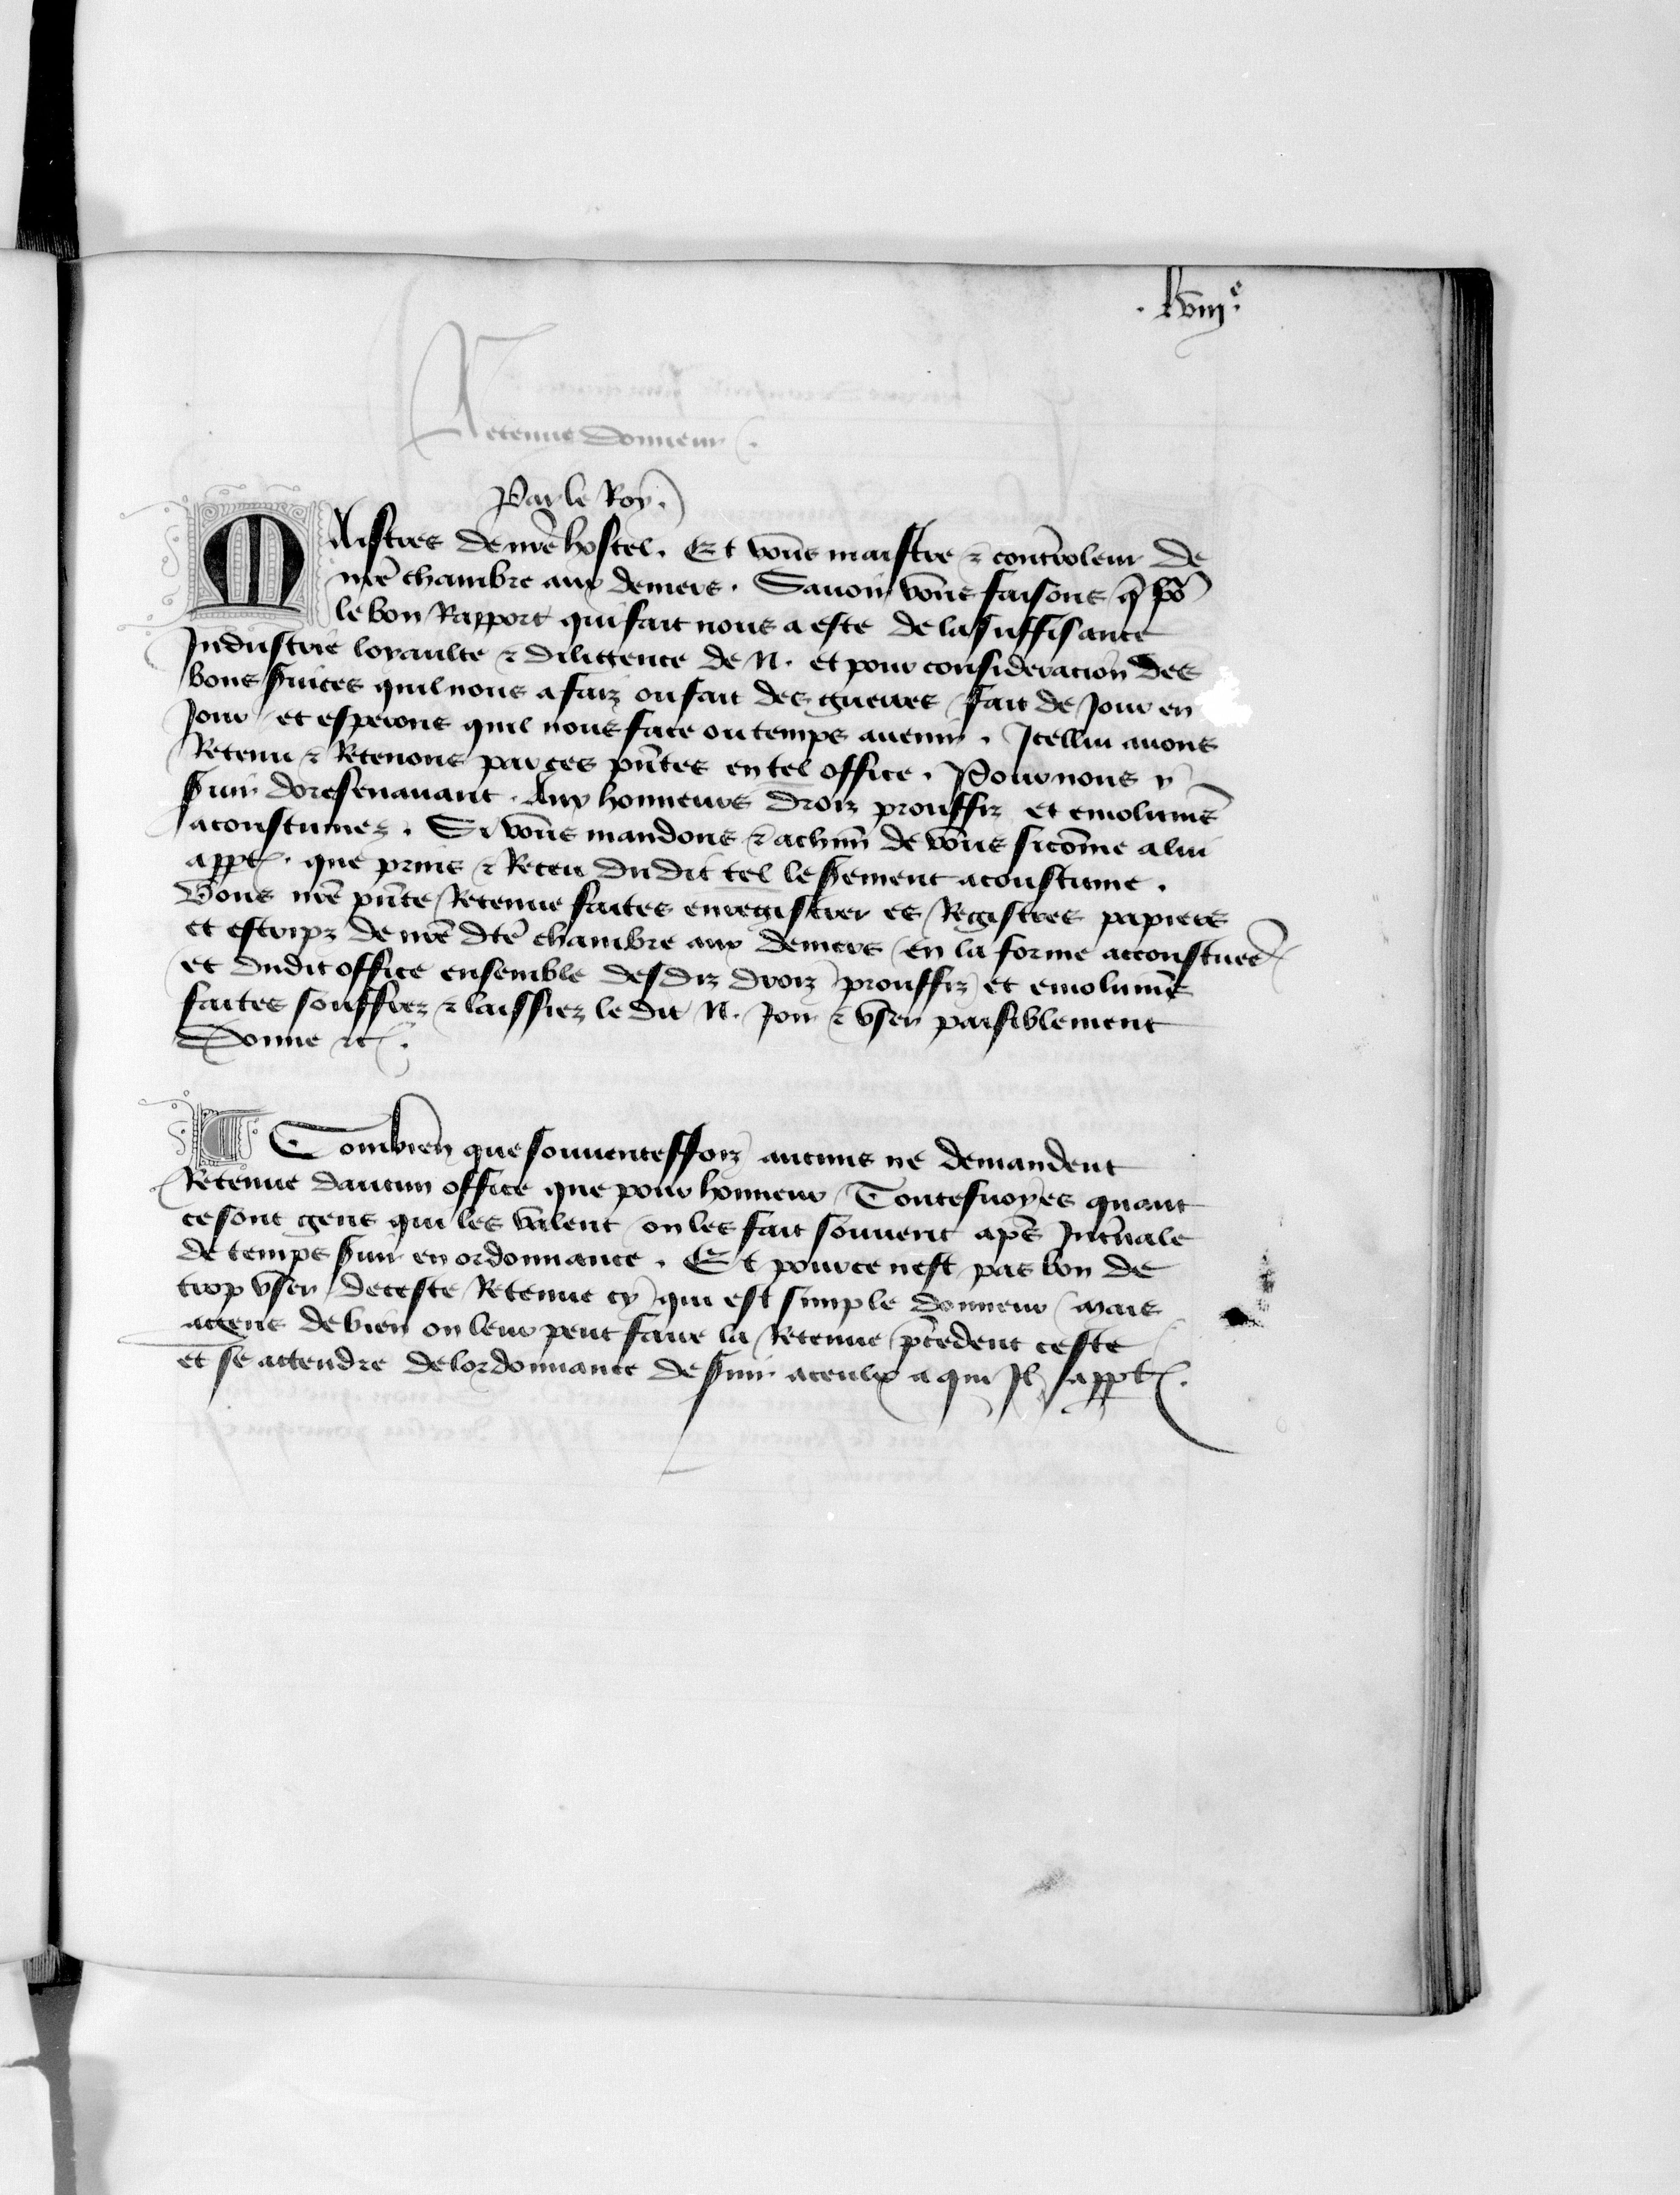 . lviij.e
Retenue donneur.
Par le Roy.
Maistres de nr̄e hostel. Et vous maistre & contreroleur de
nr̄e chambre aux deniers. Sauoir vous faisons q̄ po̅
le bon Rapport qui fait nous a este de la suffisance
Industrie loyaulte & diligence de N. et pour consideracion des
bons s̄uices quil nous a faiz ou fait des guerres / fait de Jour en
Jour / et esperons quil nous face ou temps auenir. Icellui auons
Retenu & Retenons par ces pn̄tes en tel office. Pour nous y
s̄uir doresenauant. Aux honneurs droiz prouffiz et emolumē
acoustumez. Si vous mandons & a chūn de vous sicōme a lui
appt̄. que prins & Receu dudit tel le s̄ement acoustume.
Vous nr̄e pn̄te Retenue faites enregistrer es Registres papiers
et escripz de nr̄e dt̄e chambre aux deniers / en la forme accoustuee
et dudit office ensemble desdiz droiz prouffiz et emolumē
faites souffrez & laissiez le dit N. Joir & vser paisiblement
Donne etc̄.
Combien que souuenteffoiz aucuns ne demandent
Retenue daucun office que pour honneur / Toutesuoyes quant
ce sont gens qui les valent / on les fait souuent ap̄s Int̄uale
de temps s̄uir en ordonnance. Et pource nest pas bon de
trop vser de ceste Retenue cy qui est simple donneur / mais
a gens de bien on leur peut faire la Retenue p̄cedent ceste
et se attendre de lordonnance de s̄uir a ceulx a qui Il appt̄.